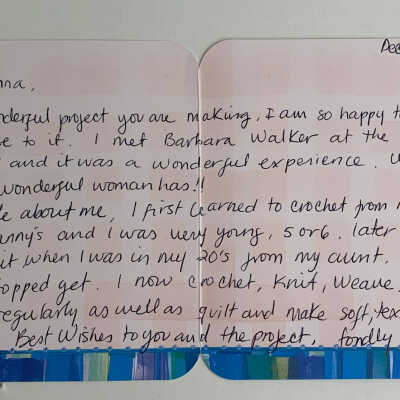 Dec
nna,
nderful project you are making, I am so happy t
se to it. I met Barbara Walker at the
and it was a wonderful experience.
wonderful woman has!!
le about me, I first learned to crochet from
anny's and I was very young, 5 or 6. later
it when I was in my 20's from my aunt.
opped yet. I now crochet, Knit, Weave,
regularly as well as quilt and make soft, tex
Best Wishes to you and the project, fondly